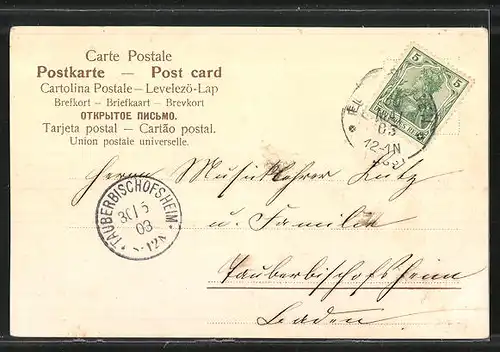 Carte Postale
Postkarte — Post card
Cartolina Postale – Levelező-Lap
Brefkort – Briefkaart – Brevkort
ОТКРЫТОЕ ПИСЬМО.
Tarjeta postal – Cartão postal.
Union postale universelle.
5 5
03
12-1N
Herrn Musiklehrer Lutz
u. Familie
Tauberbischofsheim
Baden
TAUBERBISCHOFSHEIM
30 5
03
-12N